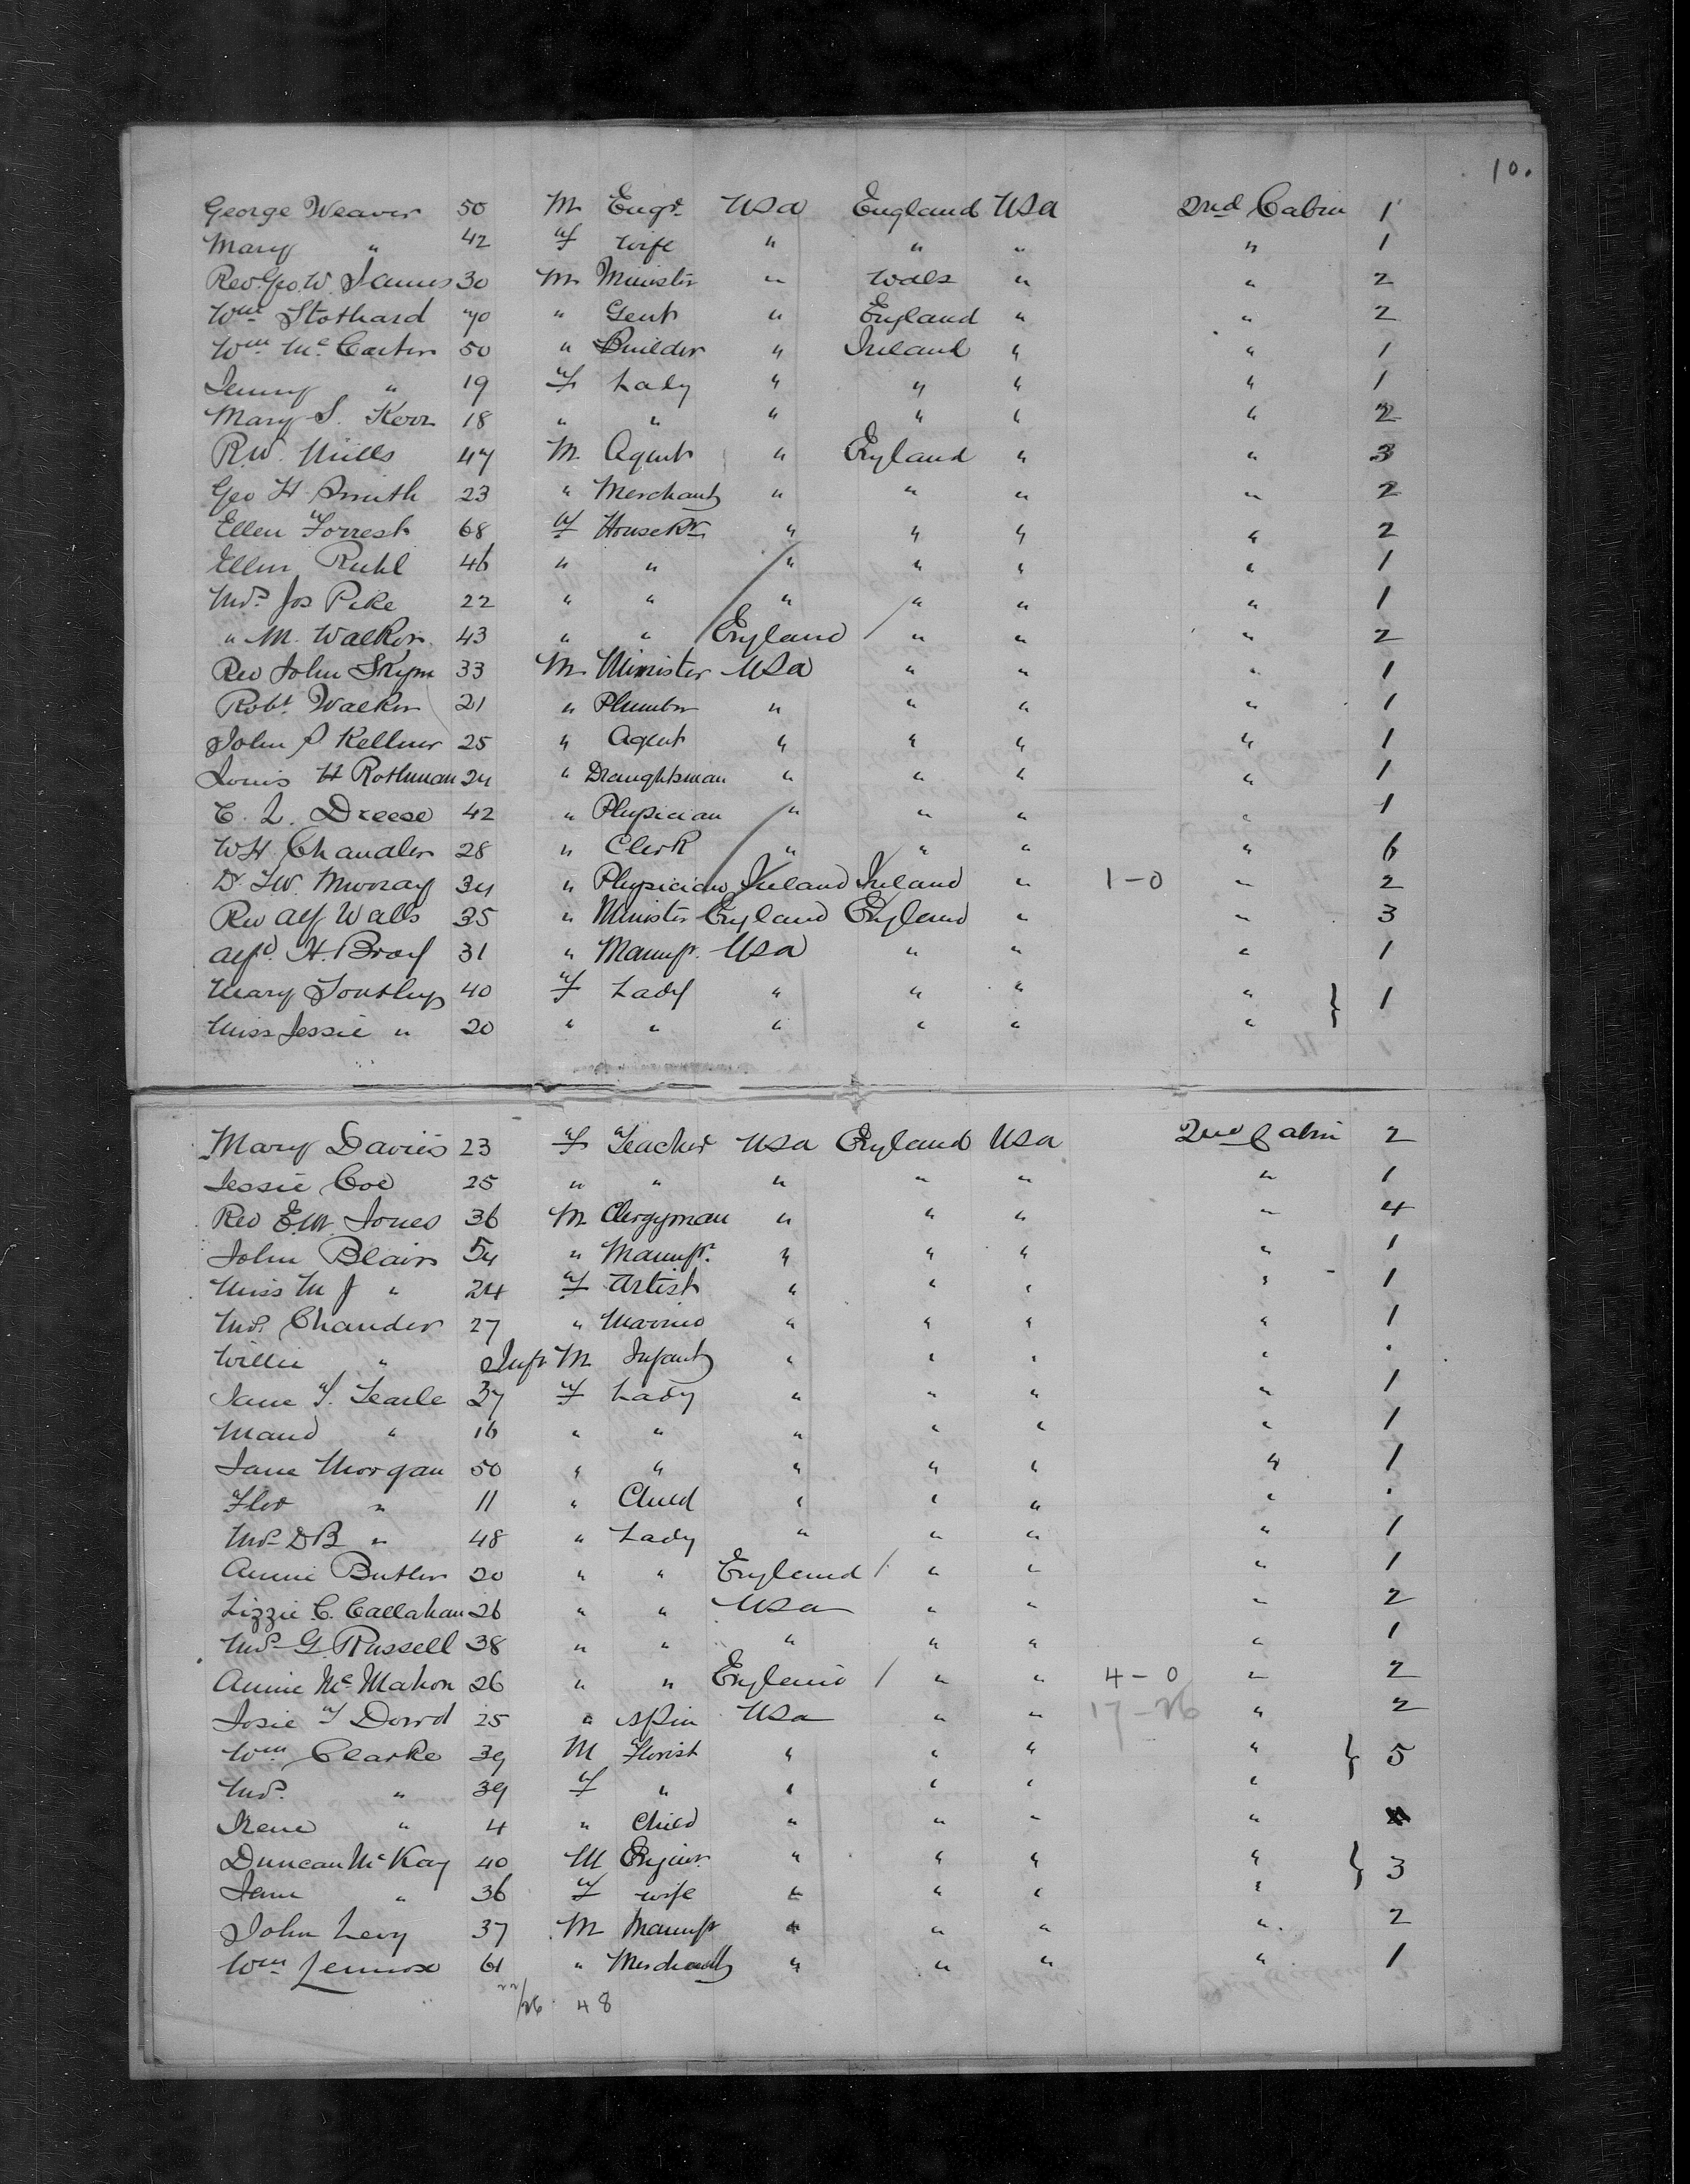 10.
George Weaver 50 M Engr. USA England USA 2nd Cabin 1
Mary " 42 f wife " " " " 1
Rev. Geo. W. James 30 M Minister " Wales " " 2
Wm Stothard 70 " Gent " England " " 2
Wm McCarter 50 " Builder " Ireland " " 1
Jenny " 19 f Lady " " " " 1
Mary S. Kerr 18 " " " " " " 2
R.W. Mills 47 M Agent " England " " 3
Geo H Smith 23 " Merchant " " " " 2
Ellen Forrest 68 f HouseKr " " " " 2
Ellen Ruhl 46 " " " " " " 1
Mrs. Jos Pike 22 " " " " " " 1
" M. Walker 43 " " England / " " " 2
Rev John Skym 33 M Minister USA " " " 1
Robt. Walker 21 " Plumber " " " " 1
John S Kellner 25 " Agent " " " " 1
Louis H Rothman 24 " Draughtsman " " " " 1
C. L. Dreese 42 " Physician " " " " 1
WH Chandler 28 " Clerk " " " " 6
Dr. J.W. Murray 34 " Physician Ireland Ireland " 1-0 " 2
Rev Alf Walls 35 " Minister England England " " 3
Alfd. H. Bray 31 " Manufr. USA " " " 1
Mary 40 f Lady " " " " } 1
Miss Jessie " 20 " " " " " "
Mary Davies 23 f Teacher USA England USA 2nd Cabin 2
Jessie Coe 25 " " " " " " 1
Rev E.W. Jones 36 M Clergyman " " " " 4
John Blair 54 " Manufr. " " " " 1
Miss M J " 24 f Artist " " " " 1
Mrs. Chander 27 " Married " " " " 1
Willie " Inft M Infant " " " " .
Jane T. Searle 37 f Lady " " " " 1
Maud " 16 " " " " " " 1
Jane Morgan 50 " " " " " " 1
Flor " 11 " Child " " " " .
Mrs D B " 48 " Lady " " " " 1
Annie Butler 20 " " England / " " " 1
Lizzie C. Callahan 26 " " USA " " " 2
Mrs G. Russell 38 " " " " " " 1
Annie McMahon 26 " " England / " " 4-0 " 2
Josie F Dowd 25 " Spin USA " " 17-26 " 2
Wm Clarke 39 M Florist " " " " } 5
Mrs. " 39 f " " " " "
Irene " 4 " Child " " " "
Duncan McKay 40 M Engineer " " " " } 3
Jane " 36 f wife " " " "
John Levy 37 M Manufr " " " " 2
Wm Lennox 61 " Merchant " " " " 1
22/26 48